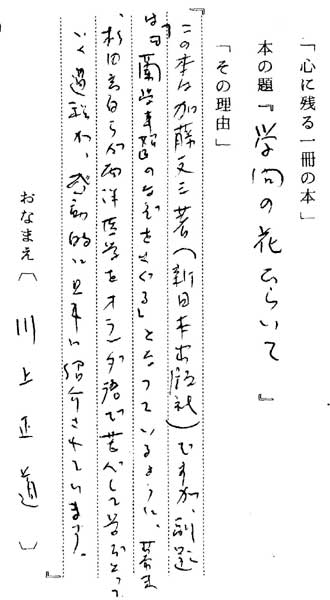 「心に残る一冊の本」
本の題『学問の花ひらいて』
「その理由」
『この本は加藤文三著(新日本出版社)ですが、副題
は「蘭学事始のなぞをさぐる」となっているように、幕末
、杉田玄白らが西洋医学をオランダ語で苦心して学びとって
いく過程が、感動的に見事に紹介されています。』
おなまえ〔川上正道〕